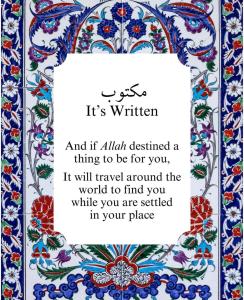 مكتوب
It's Written
And if Allah destined a
thing to be for you,
It will travel around the
world to find you
while you are settled
in your place